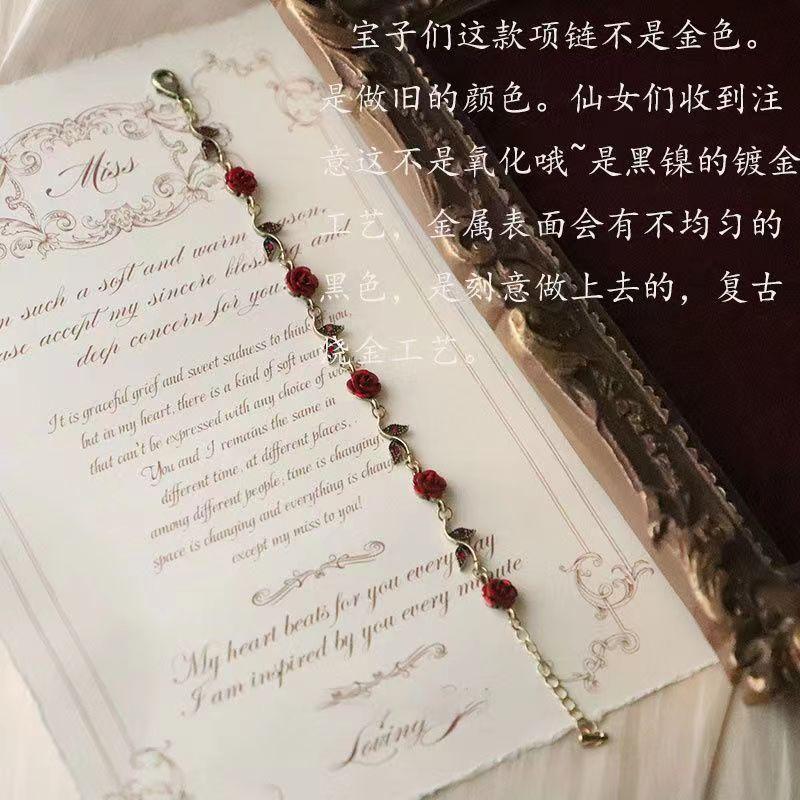 宝子们这款项链不是金色。
是做旧的颜色。仙女们收到注
意这不是氧化哦~是黑镍的镀金
工艺，金属表面会有不均匀的
黑色，是刻意做上去的，复古
烧金工艺。
Miss
such a soft and warm
accept my sincere blessing and
deep concern for you
It is graceful grief and sweet sadness to think of you,
but in my heart, there is a kind of soft
that can't be expressed with any choice of
You and I remains the same in
different time, at different places,
among different people; time is changing
space is changing and everything is
except my miss to you!
My heart beats for you every day
I am inspired by you every minute
Loving